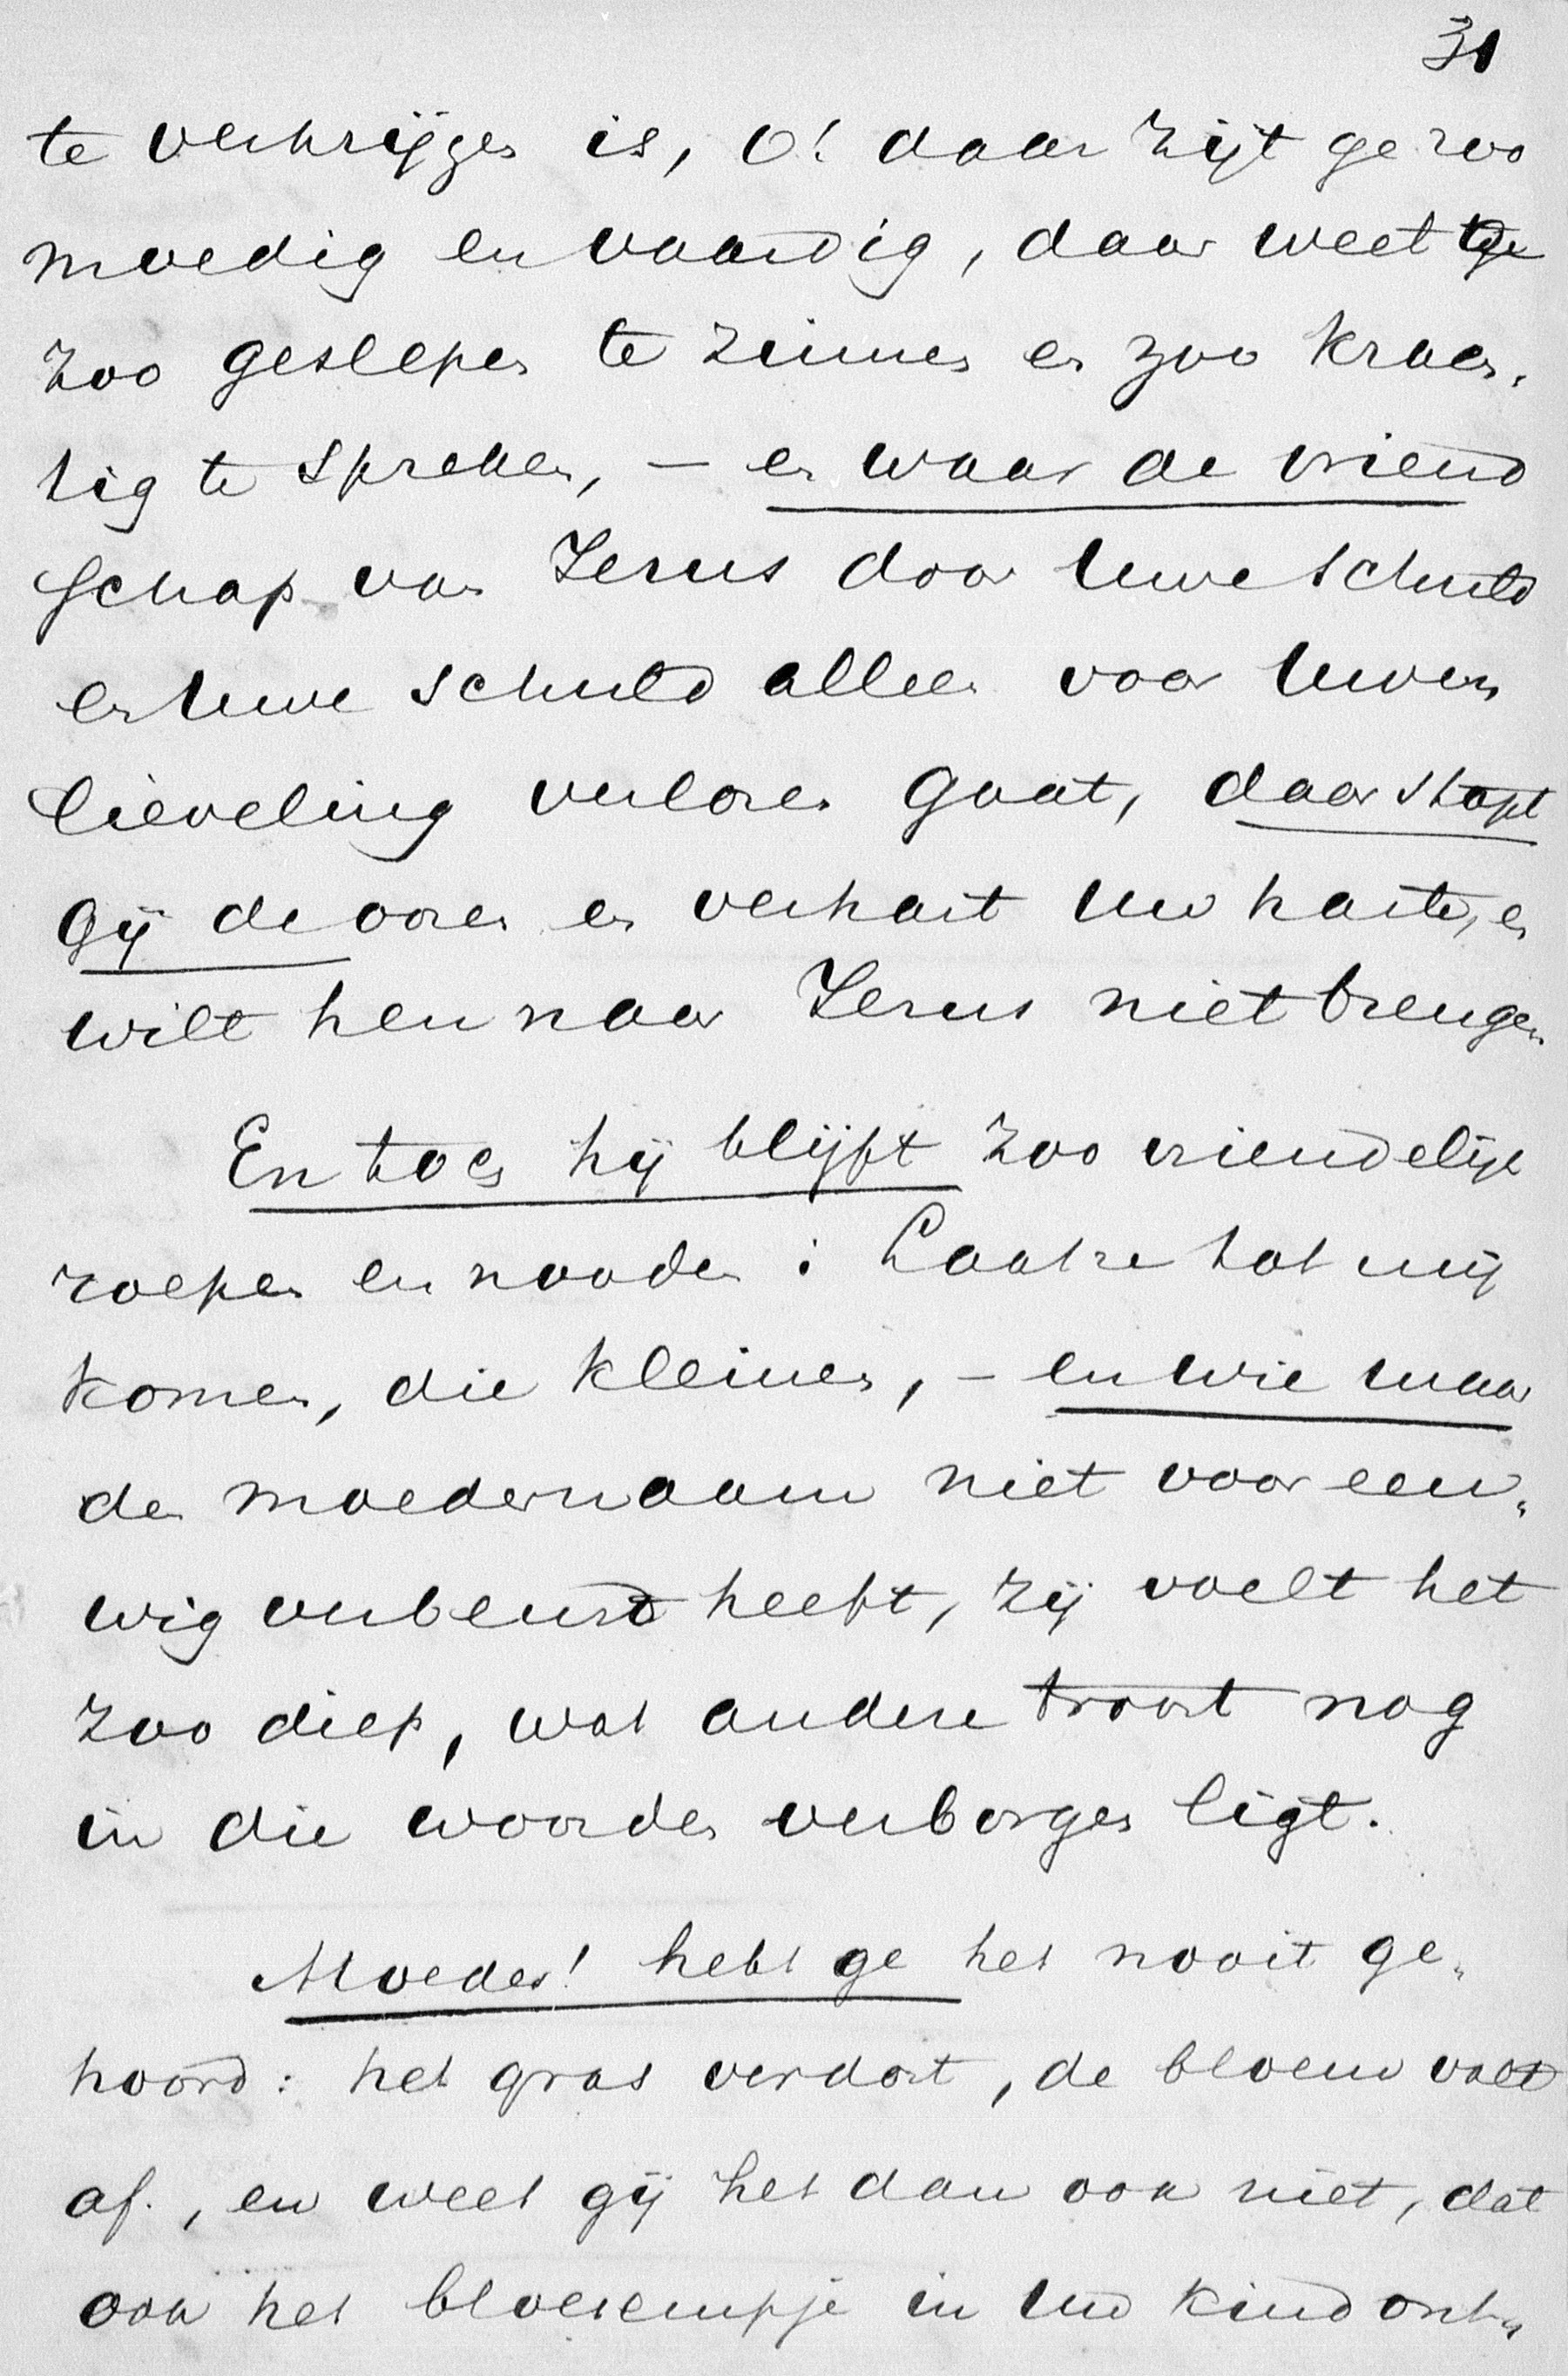 31
te verkrijgen is, o! daar zijt ge zoo
moedig en vaardig, daar weet ge
zoo geslepen te zinnen en zoo krach„
tig te spreken, – en waar de vriend
schap van Jezus door Uwe schuld
en Uwe schuld alleen voor Uwen
lieveling verloren gaat, daar stopt
gij de ooren en verhart Uw harte, en
wilt hen naar Jezus niet brengen
En toch hij blijft zoo vriendelijk
roepen en nooden: Laat ze tot mij
komen, die kleinen, – en wie maar
den moedernaam niet voor eeu„
wig verbeurd heeft, zij voelt het
zoo diep, wat andere troost nog
in die woorden verborgen ligt.
Moeder! hebt ge het nooit ge„
hoord: het gras verdort, de bloem valt
af., en weet gij het dan ook niet, dat
ook het bloesempje in Uw kind ont„